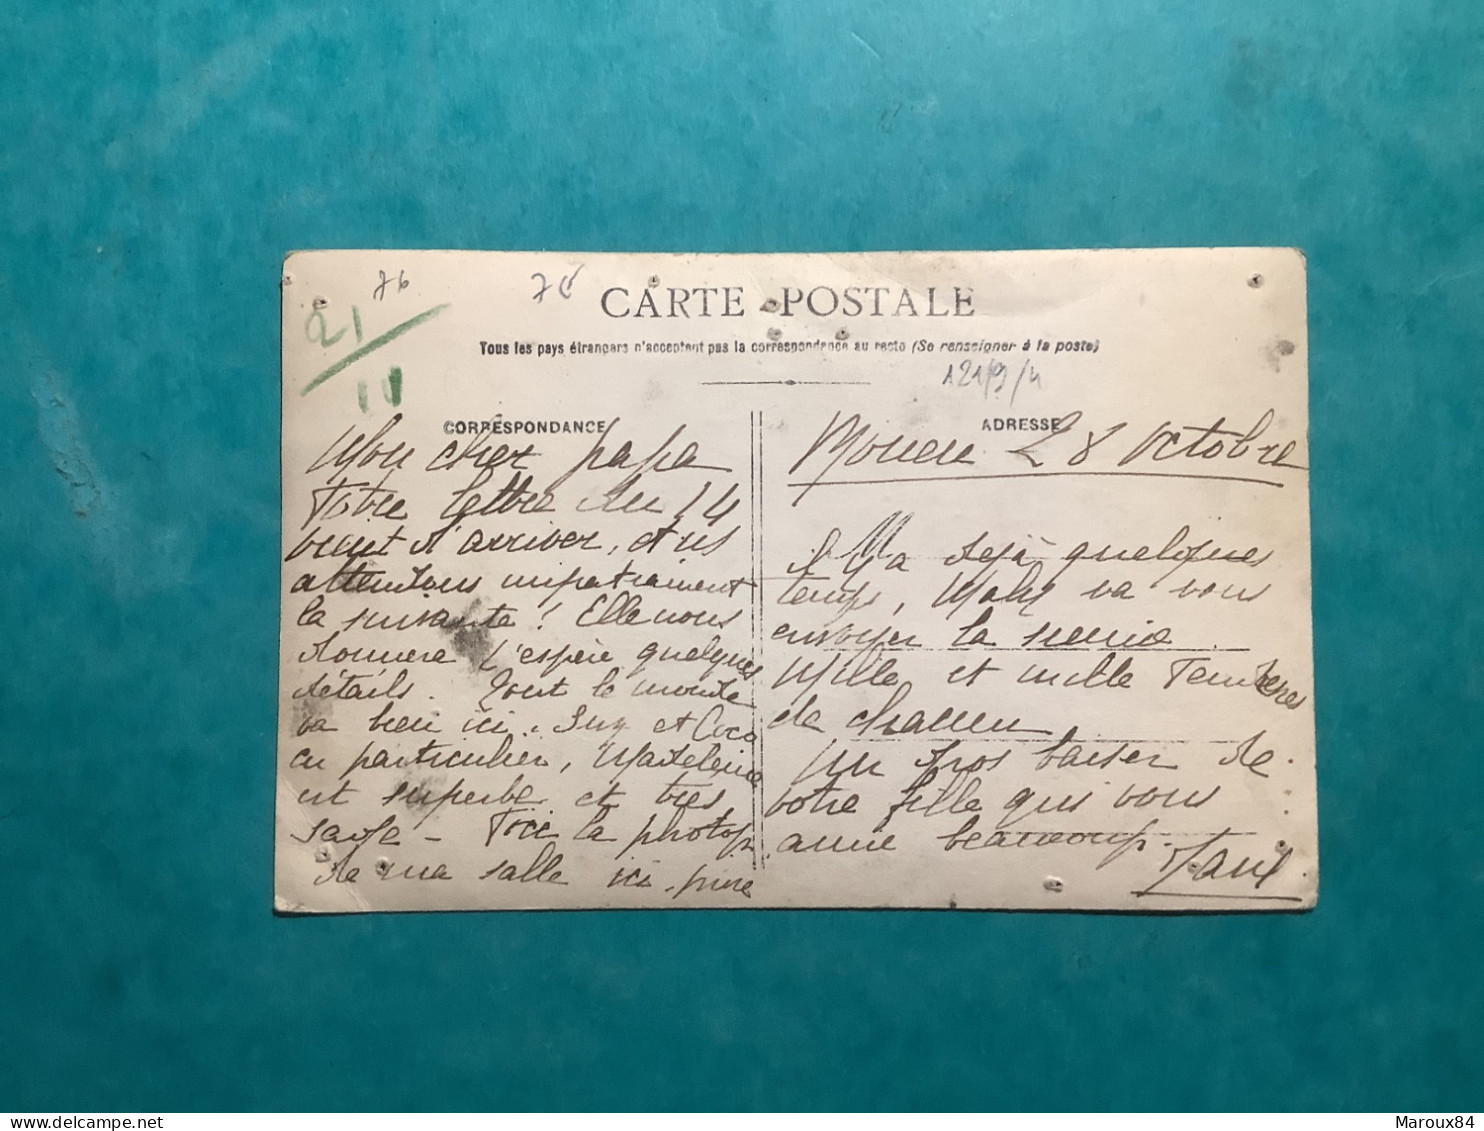 76
76
21
11
CARTE POSTALE
Tous les pays étrangers n'acceptent pas la correspondance au recto (Se renseigner à la poste)
CORRESPONDANCE
Mon cher papa
Votre lettre du 14
vient d'arriver, et ns
attendons impatiemment
la suivante! Elle nous
donnera j'espère quelques
détails. Tout le monde
va bien ici. Suz et Coco
en particulier, Madeleine
est superbe et très
sage - Voici la photogr.
de ma salle ici, prise
ADRESSE
Rouen 28 Octobre
il y a déjà quelques
temps, va vous
envoyer la sienne
Mille et mille tendresses
de chacun
Un gros baiser de
votre fille qui vous
aime beaucoup.
Maroux84